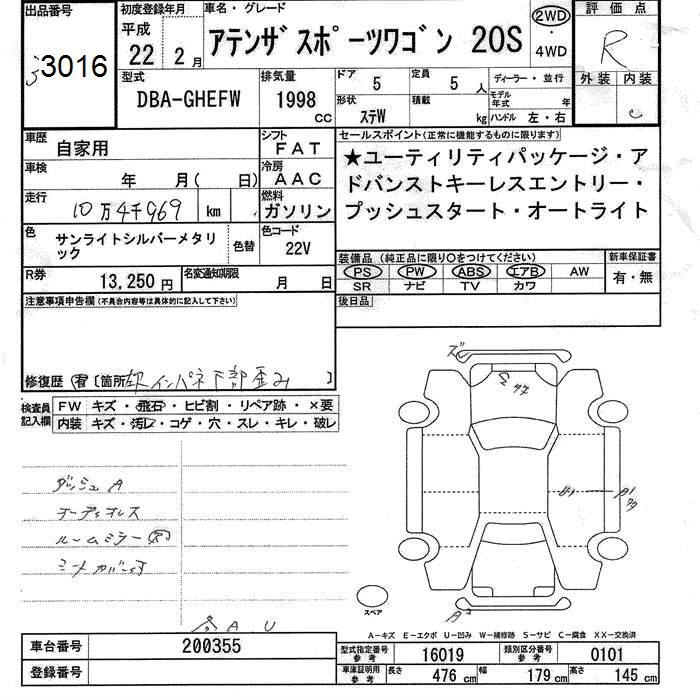 出品番号
3016
初度登録年月
平成
22年 2月
車名・グレード
アテンザスポーツワゴン 20S
2WD
4WD
評価点
R
外装 内装
C
型式
DBA-GHEFW
排気量
1998 cc
ドア 5
定員 5 人
形状 ステW
積載 kg
ディーラー・並行
モデル年式 年
ハンドル 左・右
車歴 自家用
シフト FAT
車検 年 月( 日)
冷房 AAC
走行 10万4千969 km
燃料 ガソリン
色 サンライトシルバーメタリック
色替
色コード 22V
R券 13,250円
名変通知期限 月 日
セールスポイント(正常に機能するものに限ります)
★ユーティリティパッケージ・ア
ドバンストキーレスエントリー・
プッシュスタート・オートライト
装備品 (純正品に限り○をつけてください)
PS PW ABS エアB AW
SR ナビ TV カワ
新車保証書
有・無
後日品
注意事項申告欄(不具合内容等は具体的に記入して下さい)
修復歴 有 〔箇所 左インパネ下部歪み 〕
検査員記入欄
FW キズ・飛石・ヒビ割・リペア跡・×要
内装 キズ・汚レ・コゲ・穴・スレ・キレ・破レ
ダッシュA
オーディオレス
ルームミラー
A U
ズ
A1
スペア
A
A－キズ E－エクボ U－凹み W－補修跡 S－サビ C－腐食 XX－交換済
車台番号 200355
登録番号
型式指定番号 参考 16019
類別区分番号 参考 0101
車庫証明用 参考 長さ 476 cm 幅 179 cm 高さ 145 cm